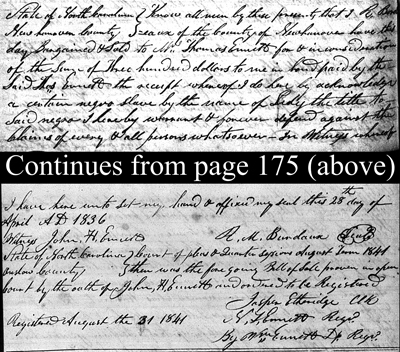 State of North Carolina Know all men by these presents that I R.
New hanover county of the county of Newhanover have this
day Bargained & Sold to Mr. Thomas Ennett for & in consideration
of the Sum of Three hundred dollars to me in hand paid by the
Said Thos Ennett the receipt whereof I do here by acknowledge
a certain negro slave by the name of the title to
Said negro I hereby warrant & forever defend against the
claims of every & all persons whatsoever - In Witness whereof
Continues from page 175 (above)
I have here unto set my hand & affixed my seal this 28th day of
April AD 1836
Witness John, H, Ennett R. M. Bundava Seal
State of North Carolina Court of pleas & Quarter sessions August Term 1841
onslow county then was the fore going Bill of Sale proven in open
court by the oath of John, H, Ennett and ordered to be Registered
Jasper Etheridge Clk
Registered August the 31 1841 Ennett Regr
By Wm Ennett D Regr